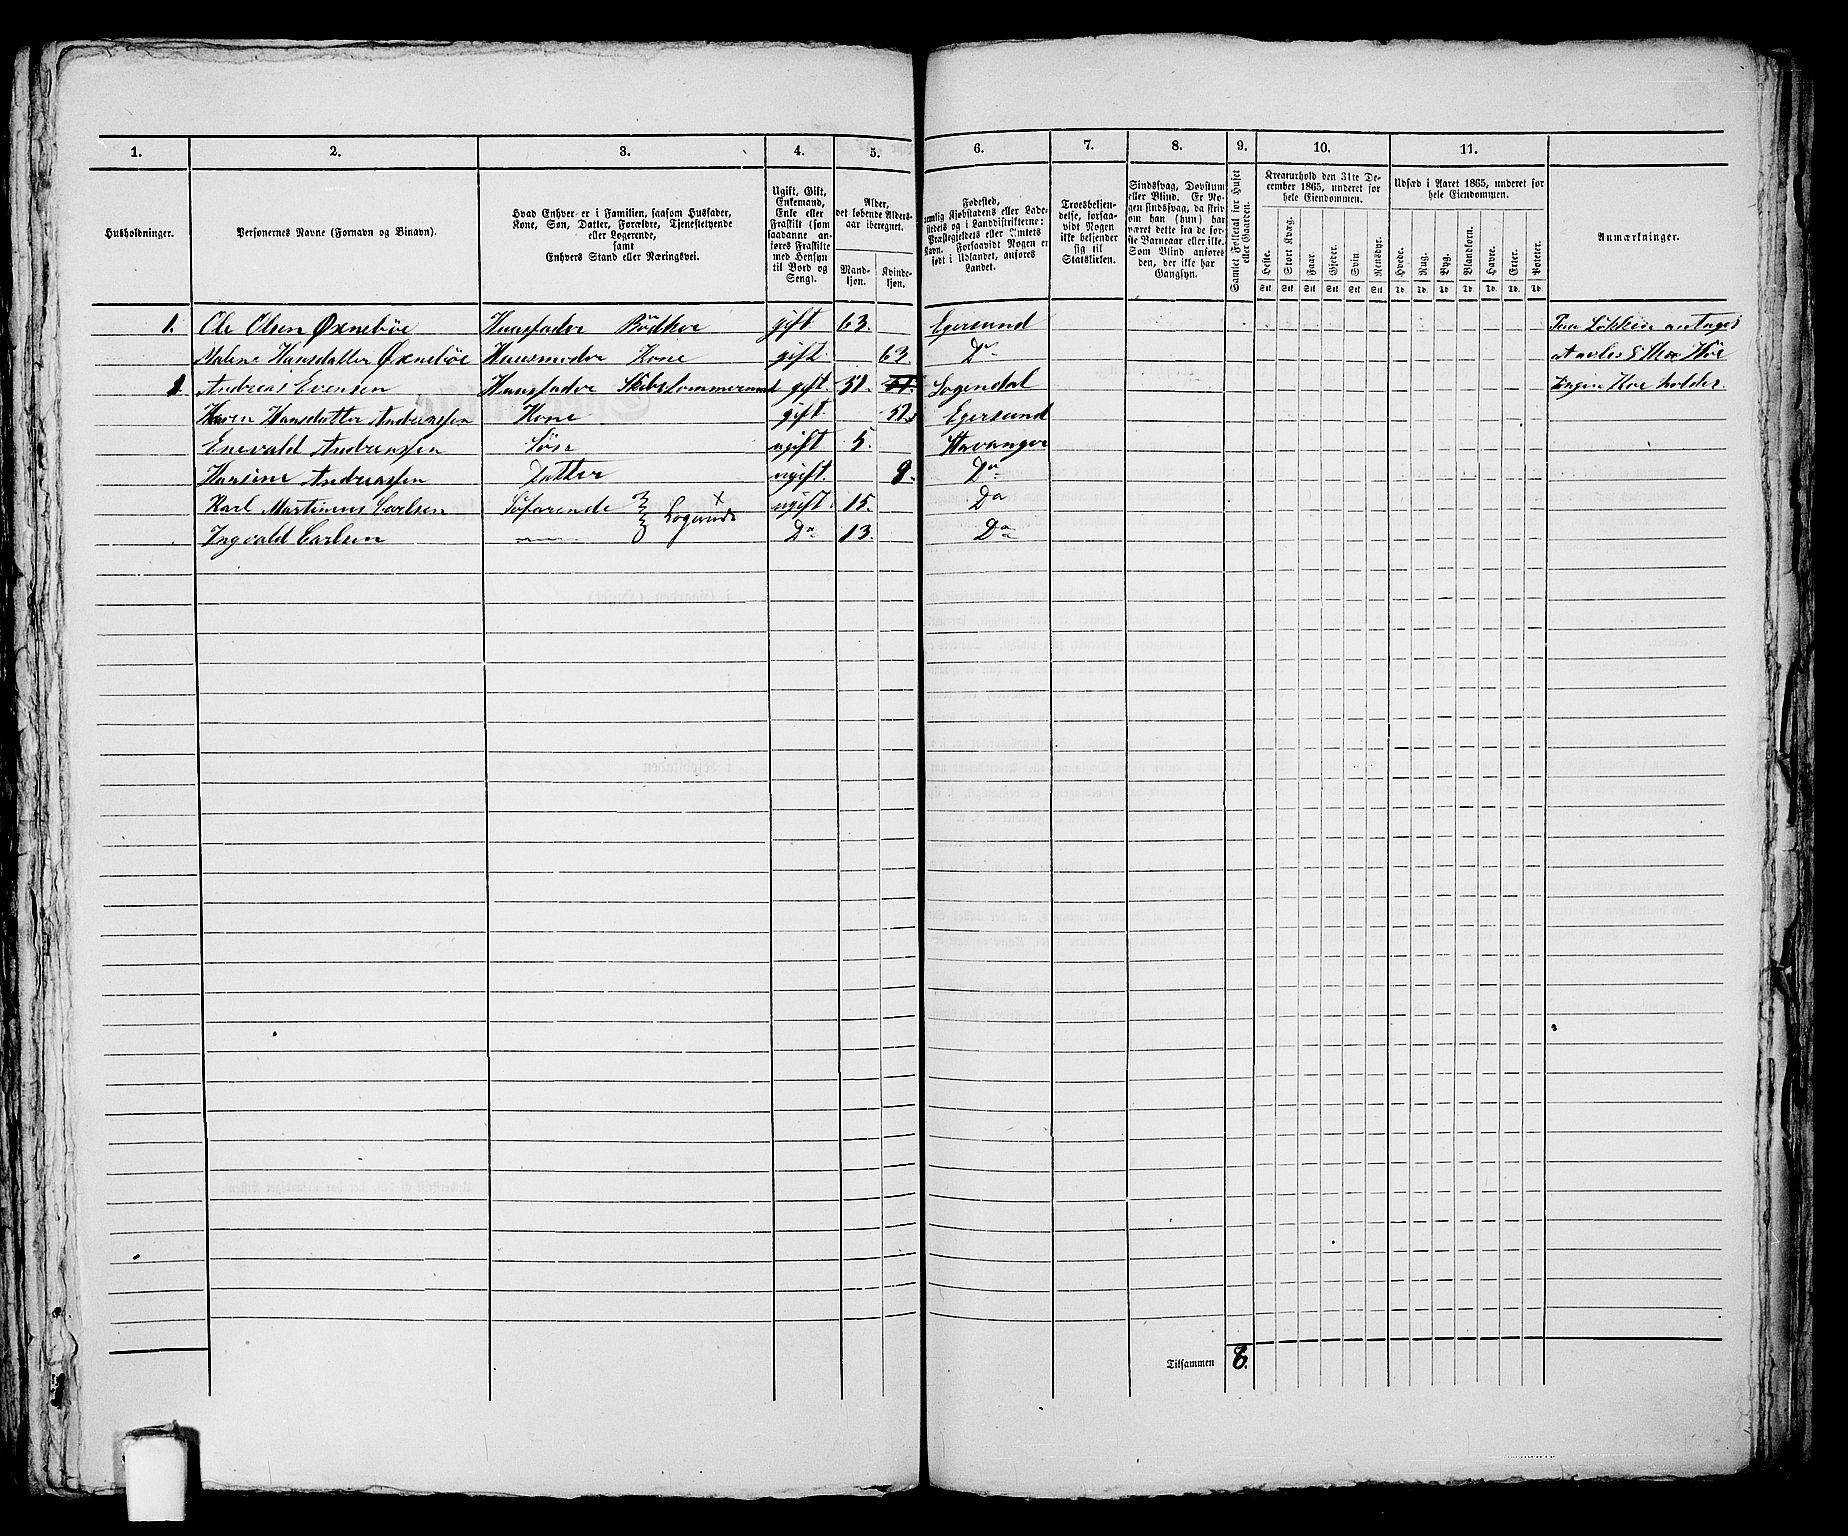 1. 2. 3. 4. 5. 6. 7. 8. 9. 10. 11.
Husholdninger.
Personernes Navne (Fornavn og Binavn).
Hvad Enhver er i Familien, saasom Husfader,
Kone, Søn, Datter, Forældre, Tjenestetyende
eller Logerende,
samt
Enhvers Stand eller Næringsvei.
Ugift, Gift,
Enkemand,
Enke eller
Fraskilt (som
saadanne an-
føres Fraskilte
med Hensyn
til Bord og
Seng).
Alder,
det løbende Alders-
aar iberegnet.
Mand-
kjøn.
Kvinde-
kjøn.
Fødested,
nemlig Kjøbstadens eller Lade-
stedets og i Landdistrikterne:
Præstegjeldets eller Amtets
Navn. Forsaavidt Nogen er
født i Udlandet, anføres
Landet.
Troesbekjen-
delse, forsaa-
vidt Nogen
ikke bekjender
sig til
Statskirken.
Sindssvag, Døvstum
eller Blind. Er No-
gen sindssvag, da skriv
om han (hun) har
været dette fra de før-
ste Barneaar eller ikke.
Som Blind anføres
den, der ikke har
Gangsyn.
Samlet Folketal for Huset
eller Gaarden.
Kreaturhold den 31te De-
cember 1865, underet for
hele Eiendommen.
Heste. Stort Kvæg. Faar. Gjeder. Svin. Rensdyr.
Stk Stk Stk Stk Stk Stk
Udsæd i Aaret 1865, underet for
hele Eiendommen.
Hvede. Rug. Byg. Blandkorn. Havre. Erter. Poteter.
Td. Td. Td. Td. Td. Td. Td.
Anmærkninger.
1. Ole Olsen Øxneböe Huusfader Bödker gift. 63. Egersund Paa Lökken antages
Malene Hansdatter Øxneböe Huusmoder Kone gift. 63. Do
1. Andreas Evensen Huusfader Skibstømmermand gift. 51. Sogendal Ingen Koe holdes.
Karen Hansdatter Andreassen Kone gift. 51. Egersund
Enevald Andreassen Søn ugift 5. Stavanger
Hansine Andreassen Datter ugift. 9. Do
Karl Martinius Carlsen Søfarende } Logerende x ugift. 15. Do
Ingvald Carlsen Do 13. Do
Tilsammen 8.